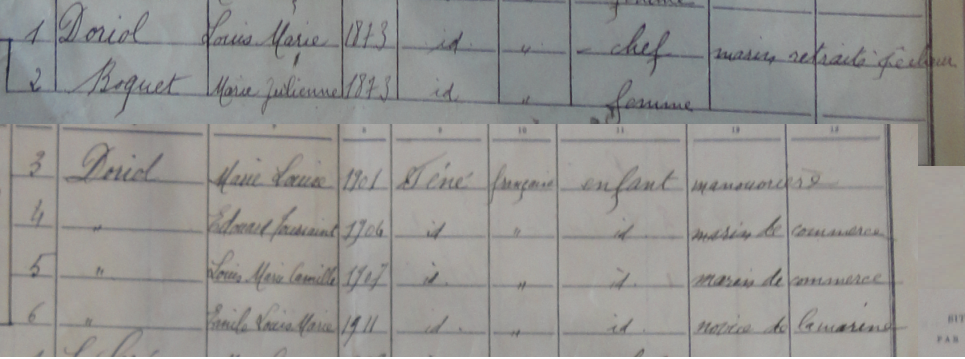 1 Doriol Louis Marie 1873 id. " chef marin retraité pêcheur
2 Boguet Marie Julienne 1873 id " femme
3 Doriol Marie Louise 1901 Séné française enfant manouvrière
4 " Edouard Toussaint 1906 id " id. marin de commerce
5 " Louis Marie Camille 1907 id. " id. marin de commerce
6 " Emile Louis Marie 1911 id. " id novice de la marine